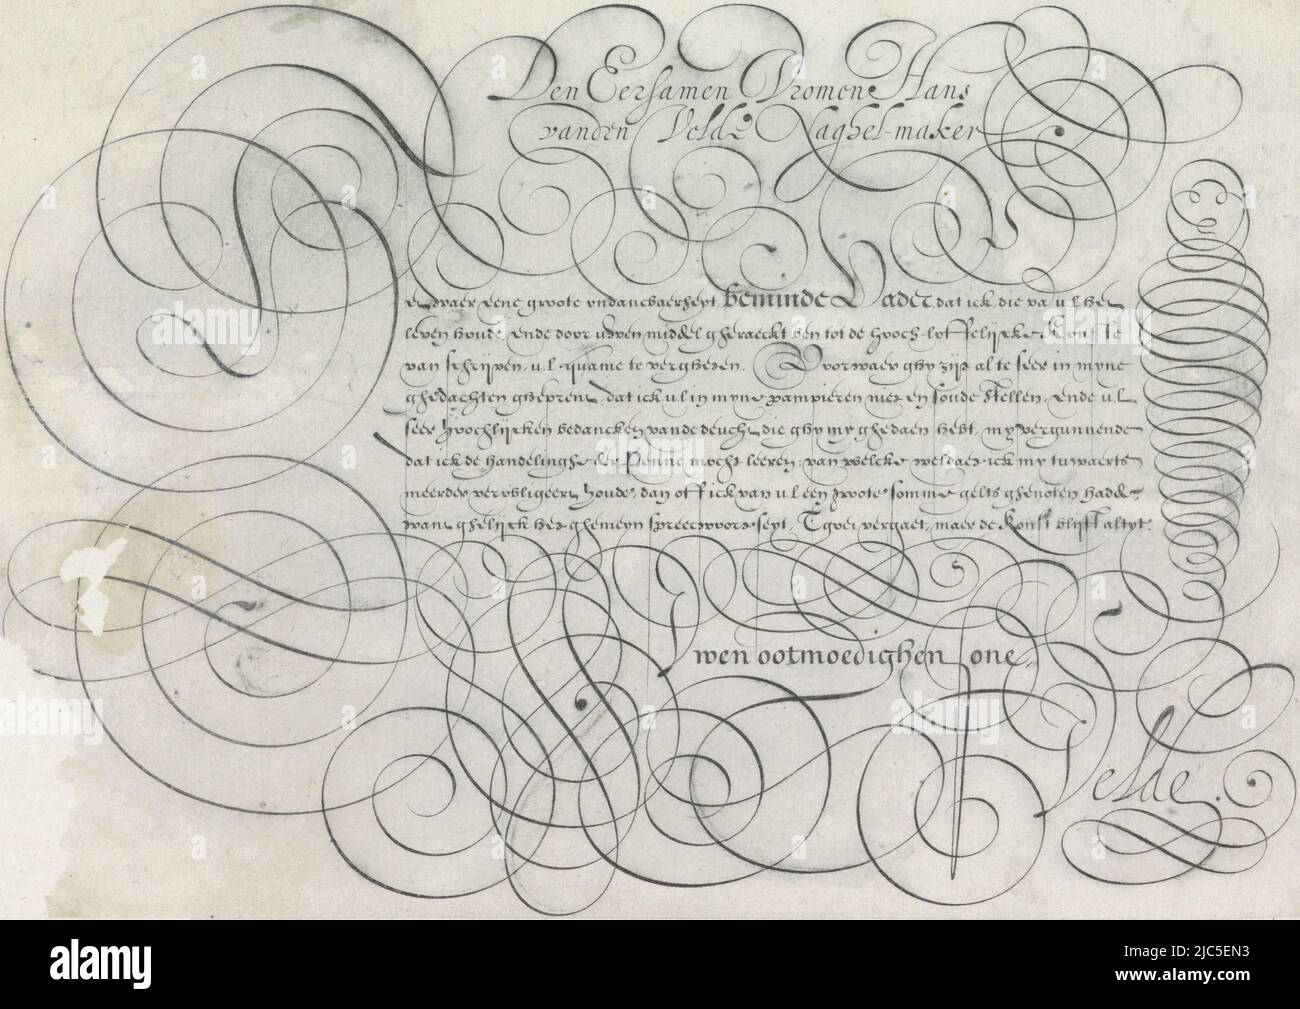 Den Eersamen Vromen Hans
vanden Velde Naghel-maker
et waer eene groote ondancbaerheyt, beminde Vader, dat ick, die va u.l. het
leven houde, ende door uwen middel gheraeckt ben tot de hooch-loffelijcke Konste
van schrijven, u.l. quame te vergheten. Voorwaer ghy zijt al te seer in myne
ghedachten gheprent, dat ick u.l. in myne pampieren niet en soude stellen, ende u.l.
seer hoochlijcken bedancken vande deucht, die ghy my ghedaen hebt, my vergunnende
dat ick de handelinghe der Penne mocht leeren; van welcke weldaet ick my tuwaerts
meerder verobligeert houde, dan oft ick van u.l. een groote somme gelts ghenoten hadde,
want ghelijck het ghemeyn spreecwoort seyt, Tgoet vergaet, maer de Konst blijft altyt.
Uwen ootmoedighen sone,
Velde.
alamy
Image ID: 2JC5EN3
www.alamy.com